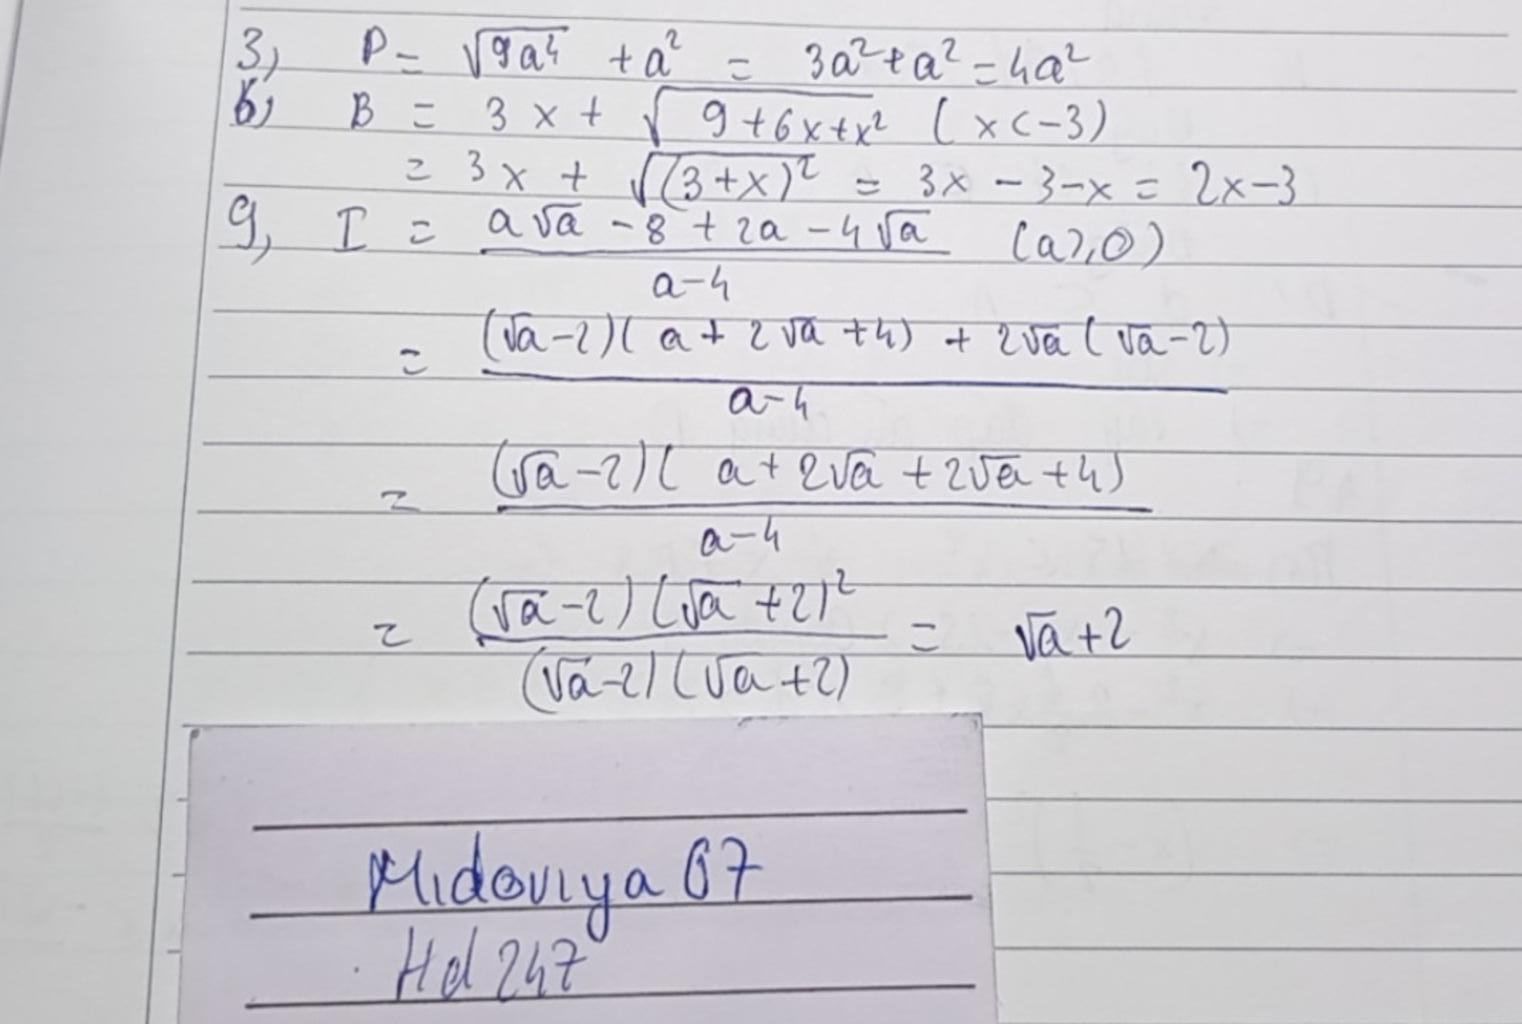 3, P = √9a⁴ + a² = 3a² + a² = 4a²
6, B = 3x + √9+6x+x² (x<-3)
= 3x + √(3+x)² = 3x - 3 - x = 2x - 3
9, I = a√a - 8 + 2a - 4√a / a-4 (a≥,0)
= (√a-2)(a+2√a+4) + 2√a(√a-2) / a-4
= (√a-2)(a+2√a+2√a+4) / a-4
= (√a-2)(√a+2)² / (√a-2)(√a+2) = √a+2
Midoviya 67
Hd 247